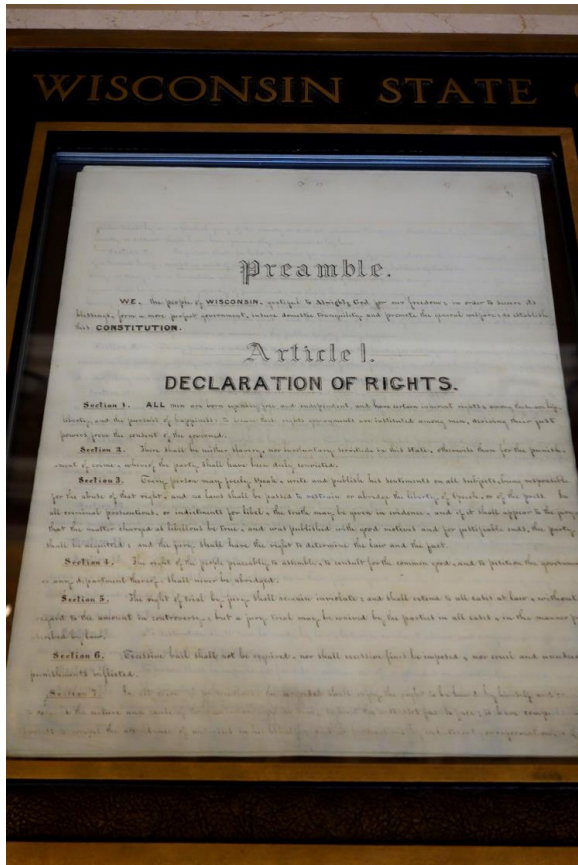 WISCONSIN STATE
Preamble.
WE, the people of WISCONSIN, grateful to Almighty God for our freedom; in order to secure its
blessings, form a more perfect government, insure domestic tranquility, and promote the general welfare; do establish
this CONSTITUTION.
Article I.
DECLARATION OF RIGHTS.
Section 1. ALL men are born equally free and independent, and have certain inherent rights, among these are life,
liberty, and the pursuit of happiness: to secure these rights governments are instituted among men, deriving their just
powers from the consent of the governed.
Section 2. There shall be neither slavery, nor involuntary servitude in this State, otherwise than for the punish-
ment of crime, whereof the party shall have been duly convicted.
Section 3. Every person may freely speak, write and publish his sentiments on all subjects, being responsible
for the abuse of that right, and no laws shall be passed to restrain or abridge the liberty of speech, or of the press. In
all criminal prosecutions, or indictments for libel, the truth may be given in evidence, and if it shall appear to the jury
that the matter charged as libellous be true, and was published with good motives and for justifiable ends, the party
shall be acquitted; and the jury shall have the right to determine the law and the fact.
Section 4. The right of the people peaceably to assemble, to consult for the common good, and to petition the government
or any department thereof, shall never be abridged.
Section 5. The right of trial by jury shall remain inviolate; and shall extend to all cases at law, without
regard to the amount in controversy; but a jury trial may be waived by the parties in all cases, in the manner
scribed by law.
Section 6. Excessive bail shall not be required, nor shall excessive fines be imposed, nor cruel and unusual
punishments inflicted.
Section 7. In all criminal prosecutions, the accused shall enjoy the right to be heard by himself and
the nature and cause of the accusation against him; to meet the witnesses face to face; to have
to compel the attendance of witnesses in his behalf;